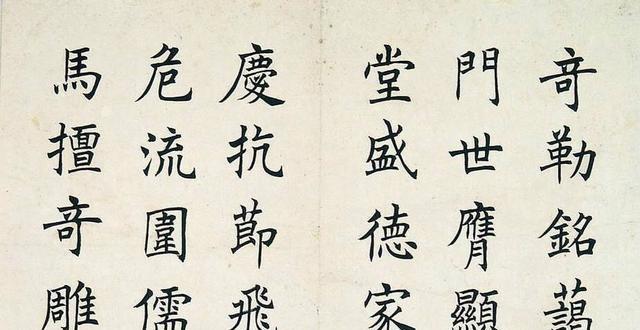 竒勒銘藹
門世膺顯
堂盛德家
慶抗節飛
危流圍儒
馬擅竒雕